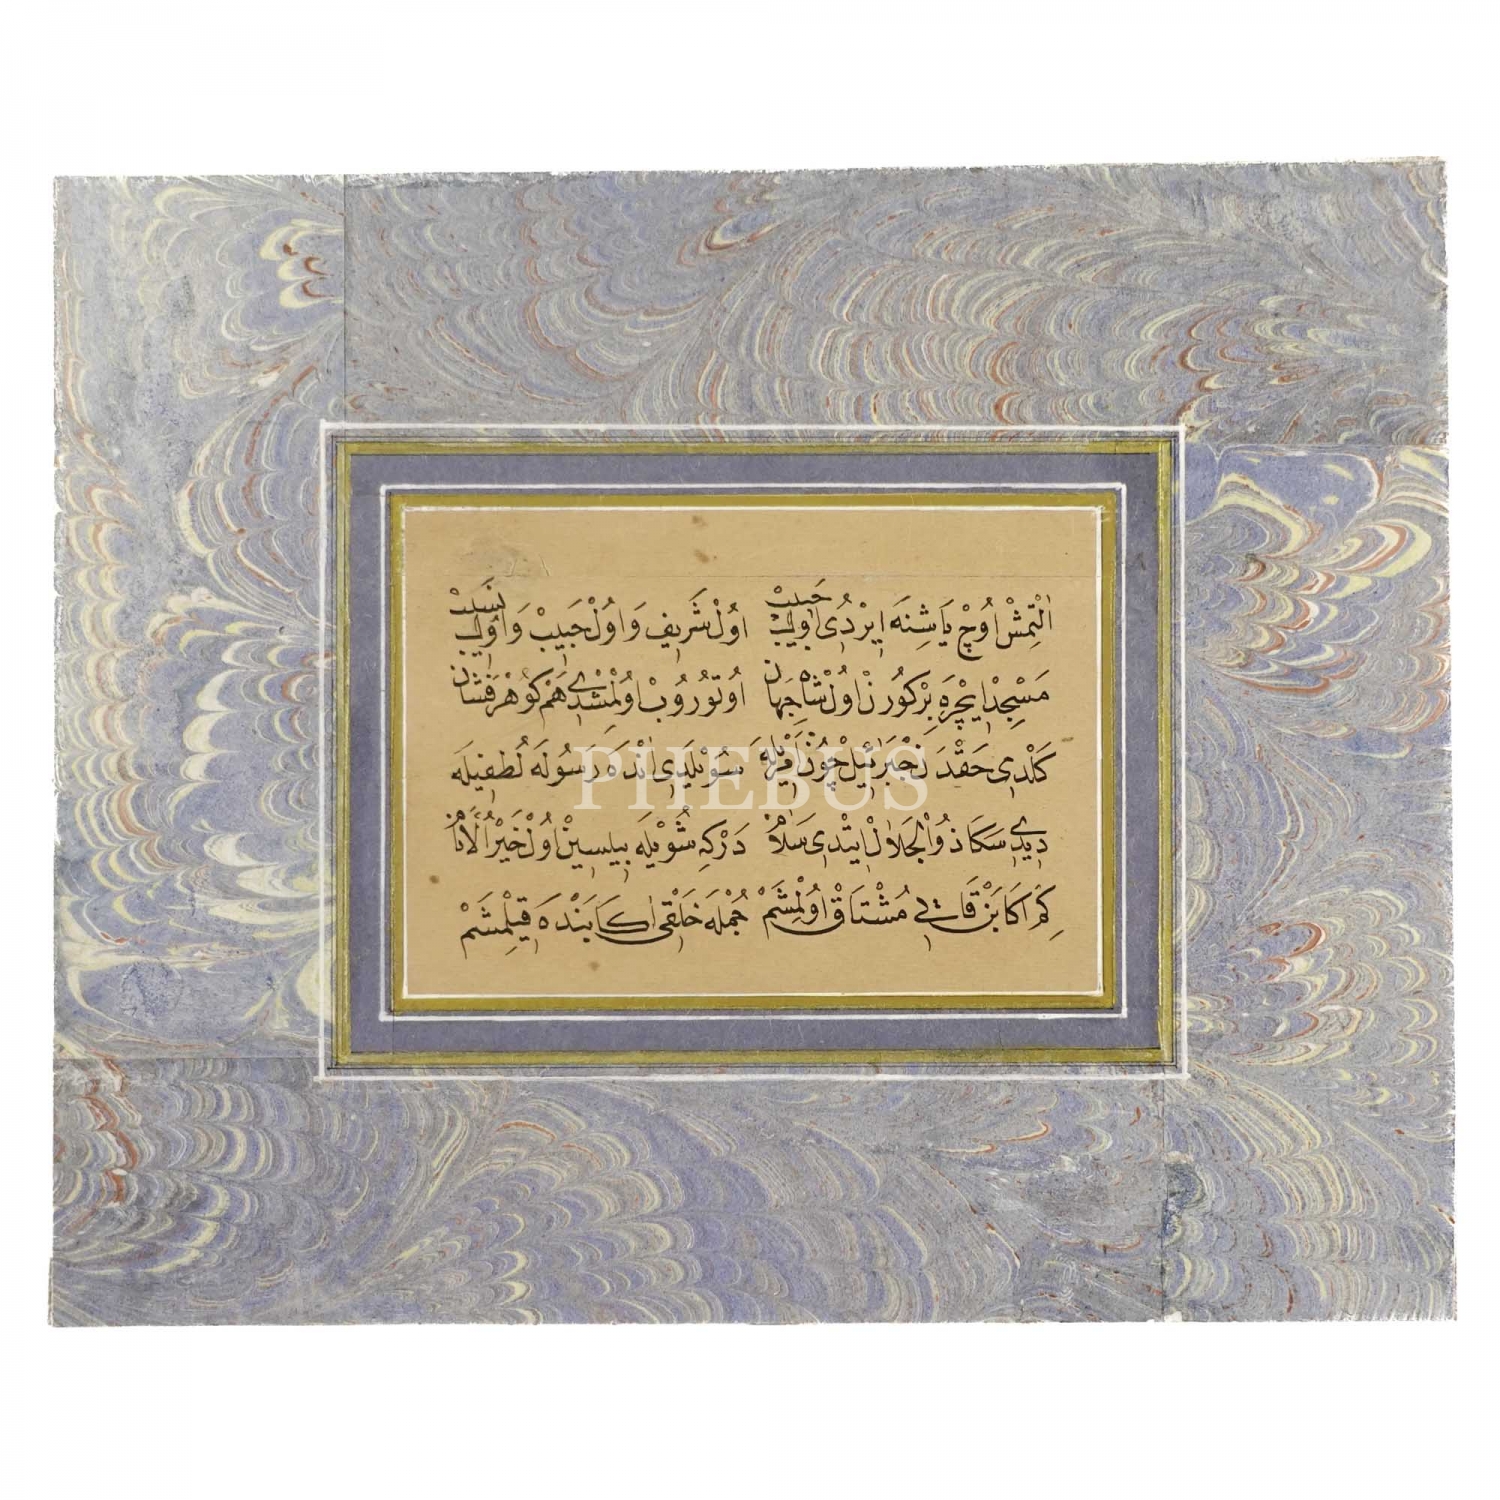 اٰلْتِمِشْ اُوچْ يَاشِنَه اِيرْدِى اُولْ حَبِيبْ اُولْ شَرِيفْ وَاُولْ حَبِيبْ وَاُولْ نَسِيبْ
مَسْجِدْ اِيچْرَه بِرْ كُورُنْ اُولْ شَاهِ جِهَانْ اُوتُورُوبْ اُولْمِشْدِى هَمْ كَوْهَرْفَشَانْ
كَلْدِى حَقْدَنْ جَبْرَائِيلْ چُونْ اَمْرِيلَه سُويْلَدِى اٰنْدَه رَسُولَه لُطْفِيلَه
دِيدِى سَكَا ذُو الْجَلَالْ اِيتْدِى سَلَامْ دَرْكِه شُويْلَه بِيلْسِينْ اُولْ خَيْرُ الْاَنَامْ
كِمْ اَكَا بَنْ قَاتِى مُشْتَاقْ اُولْمِشَمْ جُمْلَه خَلْقِى اَكَا بَنْدَه قِيلْمِشَمْ
PHEBUS